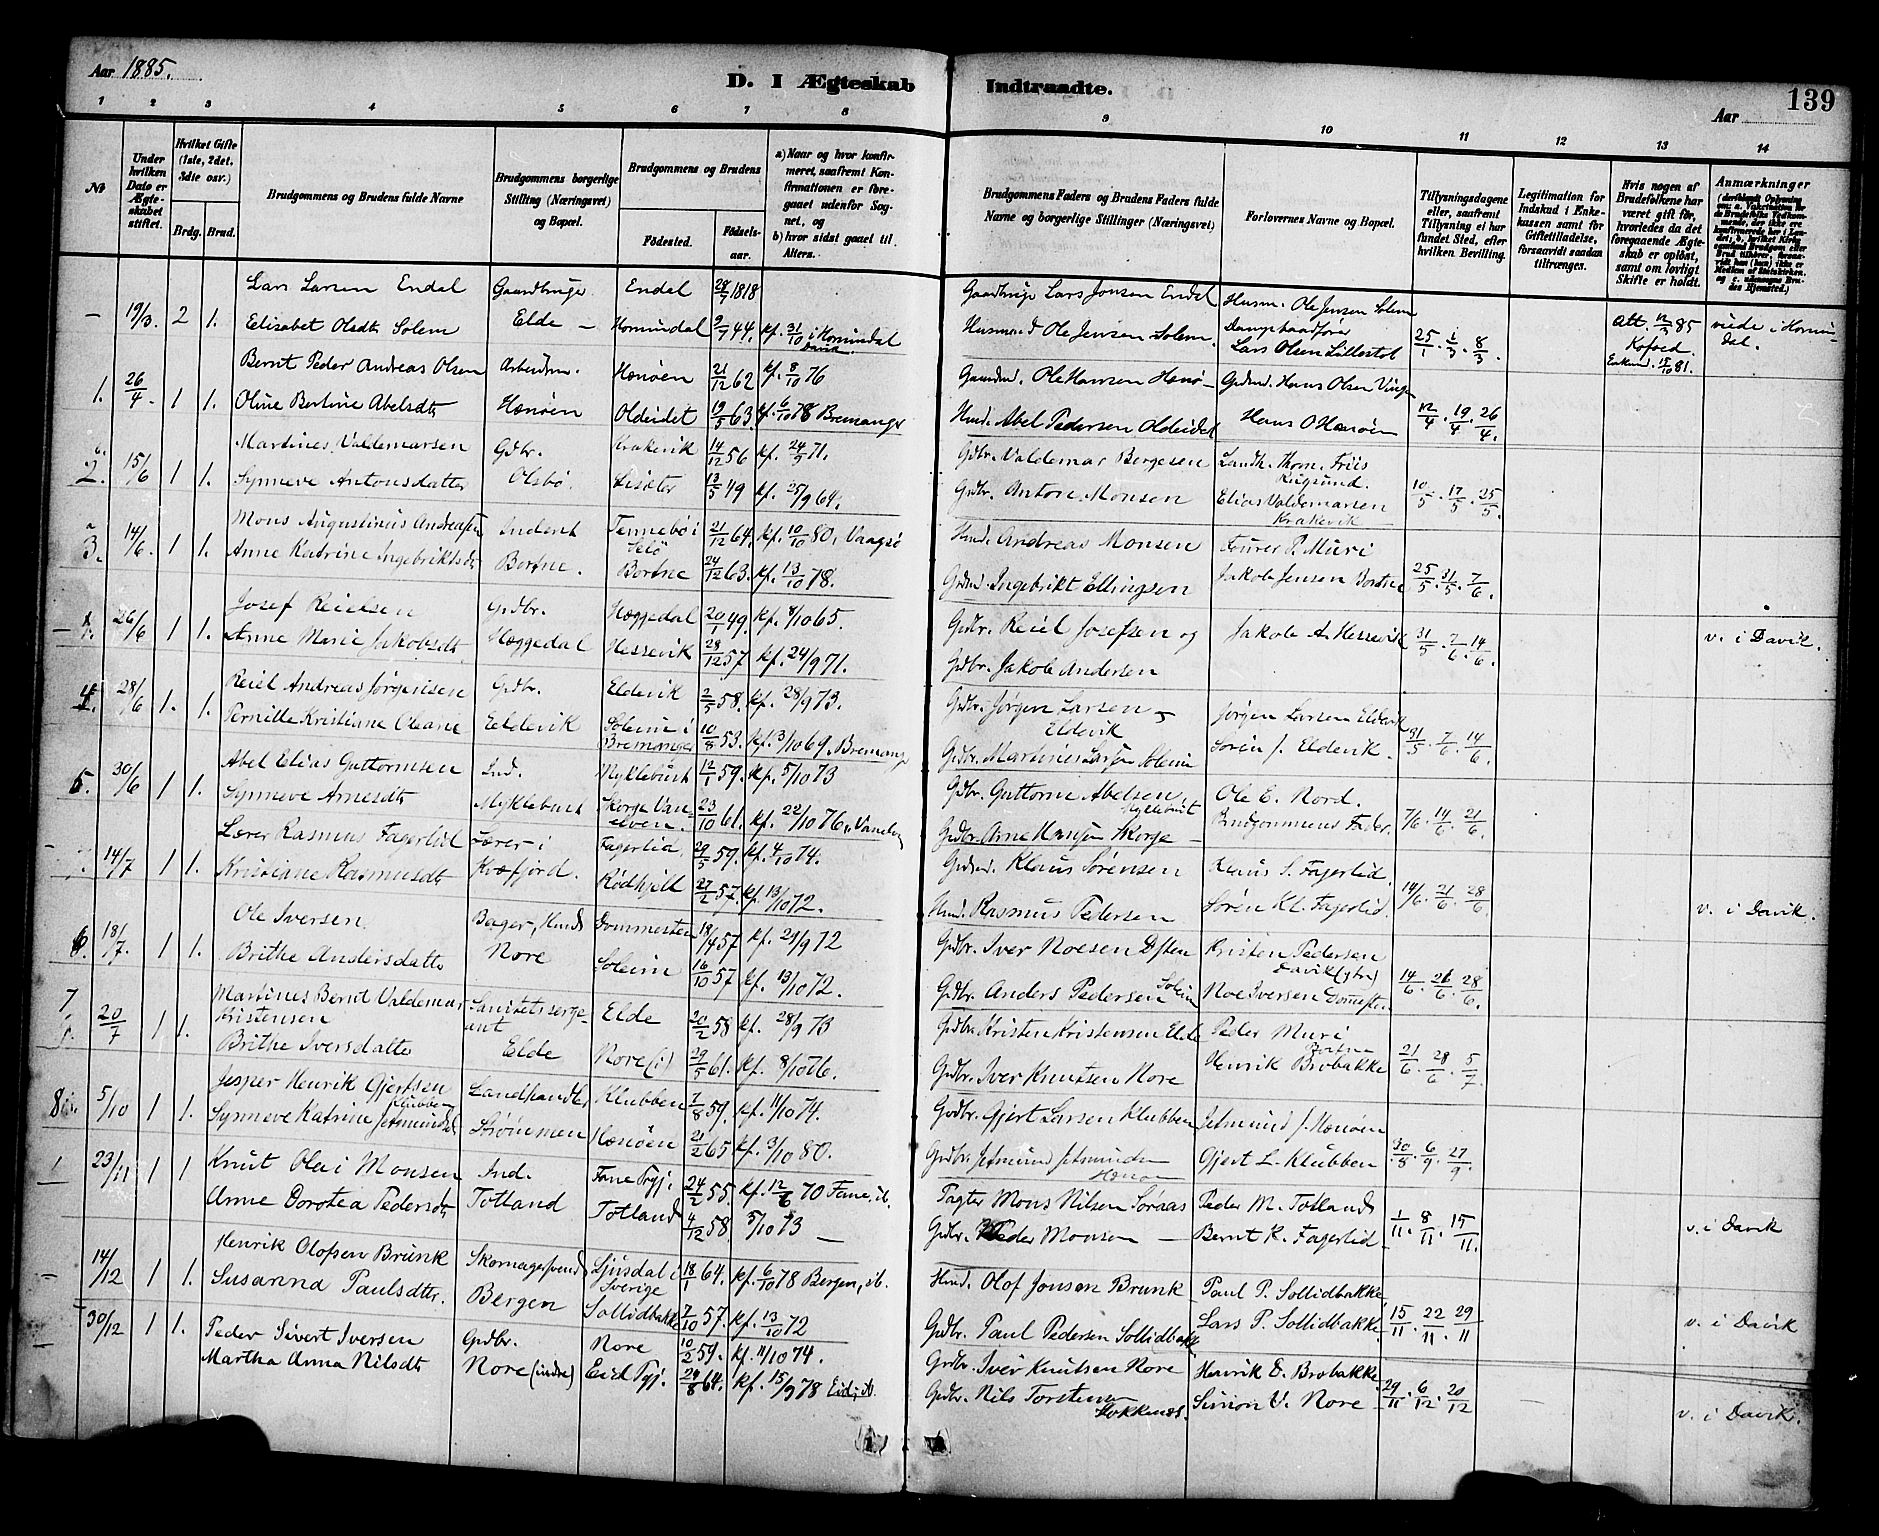 Aar 1885.
D. I Ægteskab Indtraadte.
139
Aar
1 2 3 4 5 6 7 8 9 10 11 12 13 14
No
Under hvilken Dato er Ægteskabet stiftet.
Hvilket Gifte (1ste, 2det, 3die osv.)
Brdg. Brud.
Brudgommens og Brudens fulde Navne
Brudgommens borgerlige Stilling (Næringsvei) og Bopæl.
Brudgommens og Brudens
Fødested. Fødselsaar.
a) Naar og hvor konfirmeret, saafremt Konfirmationen er foregaaet udenfor Sognet, og
b) hvor sidst gaaet til Alters.
Brudgommens Faders og Brudens Faders fulde Navne og borgerlige Stillinger (Næringsvei)
Forlovernes Navne og Bopæl.
Tillysningsdagene eller, saafremt Tillysning ei har fundet Sted, efter hvilken Bevilling.
Legitimation for Indskud i Enkekassen samt for Giftetilladelse, forsaavidt saadan tiltrænges.
Hvis nogen af Brudefolkene har været gift før, hvorledes da det foregaaende Ægteskab er opløst, samt om lovligt Skifte er holdt.
Anmærkninger
– 19/3. 2 1. Lars Larsen Endal Gaardbruger Endal 28/7 1818 Gaardbruger Lars Jonsen Endal Husm. Ole Jensen Solem
Elisabet Olsdtr Solem Elde – Hornindal 9/7 44. kf. 31/10 i Hornindal Husmand Ole Jensen Solem. Dampbaadfører Lars Olsen Lillestøl 25/1 . 1/3 . 8/3 Att. 12/3 85 Kofoed. Enkem. 15/10 81. viede i Hornindal.
1. 26/4. 1 1. Bernt Peder Andreas Olsen Arbeidsm. Hænøen 21/12 62 kf. 8/10 76 Gaardmd. Ole Hansen Hænø – Grdmd. Hans Olsen Vingen
Oline Bertine Abelsdtr Hænøen Oldeidet 19/5 63. kf. 6/10 78 Bremanger Husmd. Abel Pedersen Oldeidet Hans O Hænøen 12/4 . 19/4 . 26/4.
2. 15/6 1 1. Martines Valdemarsen Gdbr. Krakevik 14/12 56 kf. 24/9 71. Gdbr. Valdemar Bergesen Landh. Thom. Friis Rugsund.
Synneve Antonsdatter Olsbø. Lisæter 13/5 49 kf. 25/9 64. Grdbr. Anton Monsen Elias Valdemarsen Krakevik 10/5 . 17/5 . 25/5.
3. 14/6. 1 1. Mons Augustinus Andreasen Inderst Tennebø i Selø 21/12 64. kf. 10/10 80, Vaagsø Husmd. Andreas Monsen Fourer P. Muri
Anne Katrine Ingebrigtsdtr Bortne. Bortne 24/12 63. kf. 13/10 78. Grdmd. Ingebrikt Ellingsen Jakob Jensen Bortne 25/5 . 31/5 . 7/6.
– 26/6 1 1. Josef Reielsen Grdbr. Hæggedal 20/1 49. kf. 8/10 65. Grdbr. Reiel Josefsen og Jakob A. Hessevik 31/5 . 7/6 . 14/6. v. i Davik.
Anne Marie Jakobsdtr. Hæggedal Hessevik 28/12 57 kf. 24/9 71. Grdbr. Jakob Andersen
4. 28/6 1. 1. Reiel Andreas Jørgensen Grdbr. Eldevik 2/5 58. kf. 28/9 73. Grdbr. Jørgen Larsen – Eldevik Jørgen Larsen Eldevik
Pernille Kristiane Oleane Eldevik Solem i Bremanger 10/8 53. kf. 3/10 69, Bremanger Grdbr. Martines Larsen Solem Søren J. Eldevik. 31/5 . 7/6 . 14/6.
5. 30/6 1 1. Abel Elias Guttormsen Ind. Myklebust 12/1 59. kf. 5/10 73 Gdbr. Guttorm Abelsen Myklebust Ole E. Nord.
Synneve Arnesdtr Myklebust Skorge Vanelven. 23/10 61. kf. 22/10 76, Vanelv. Grdbr. Arne Hansen Skorge – Brudgommens Fader. 7/6 . 14/6 . 21/6.
14/7 1 1. Lærer Rasmus Fagerlid Lærer i Fagerlid, 29/5 59. kf. 4/10 74. Grdmd. Klaus Sørensen Klaus S. Fagerlid.
Kristiane Rasmusdtr Kvæfjord. Rødhjell 27/2 57. kf. 13/10 72. Husmd. Rasmus Pedersen Søren Kl. Fagerlid. 14/6 . 21/6 . 28/6. v. i Davik.
6. 18/7. 1 1. Ole Iversen. Bager, Husmd. Dommesten 18/4 57 kf. 29/9 72 Grdbr. Iver Noesen D/sten Kristen Pedersen Davik (gbr)
Brithe Andersdatter Nore Solem 16/10 57 kf. 13/10 72. Grdbr. Anders Pedersen Solem Noe Iversen Domest. 14/6 . 26/6 . 28/6.
7 20/7 1 1. Martines Bernt Valdemar Kristensen Sanitetssergeant Elde 20/2 58 kf. 28/9 73 Grdbr. Kristen Kristensen Elde Peder Muri Bortne
Brithe Iversdatter Elde Nore (i) 29/5 61. kf. 8/10 76. Grdbr. Iver Knutsen Nore Henrik Brobakke 21/6 . 28/6 . 5/7
8. 5/10 1 1. Jesper Henrik Gjertsen Klubben Landhandler Klubben 7/8 59. kf. 11/10 74. Grdbr. Gjert Larsen Klubben Jetmund J. Hænøen
Synneve Katrine Jetmundsd. Strømmen Hænøen 21/2 65 kf. 3/10 80. Grdbr. Jetmund Jetmundsen Hænøen Gjert L. Klubben 30/8 . 6/9 . 27/9.
– 23/11 1 1 Knut Olai Monsen Ind. Fane Pgj. 24/2 55. kf. 12/6 70 Fane, ib. Pagter Mons Nilsen Søraas Peder M. Totland
Anne Dorotea Pedersdtr. Totland Totland 4/12 58. 5/10 73 – Grdbr. Peder Monsen – Bernt R. Fagerlid 1/11 . 8/11 . 15/11. v. i Davik
– 14/12 1 1. Henrik Olofsen Brunk Skomagersvend Ljusdal i Sverige 18/1 64. kf. 6/10 78 Bergen, ib. Husmd. Olof Jonsen Brunk Paul P. Sollidbakke
Susanna Paulsdtr. Bergen Sollidbakke 7/10 57. kf. 13/10 72 Grdbr. Paul Pedersen Sollidbakke Lars P. Sollidbakke 15/11 . 22/11 . 29/11 v. i Davik
– 30/12 1 1. Peder Sivert Iversen Grdbr. Nore 10/2 59. kf. 11/10 74. Grdbr. Iver Knutsen Nore Henrik E. Brobakke
Martha Anna Nilsdtr Nore (indre) Eid Pgj. 24/8 64. kf. 15/9 78 Eid, ib. Grdbr. Nils Torstensen Stokkenes. Simon V. Nore 29/11 . 6/12 . 20/12 v. i Davik.